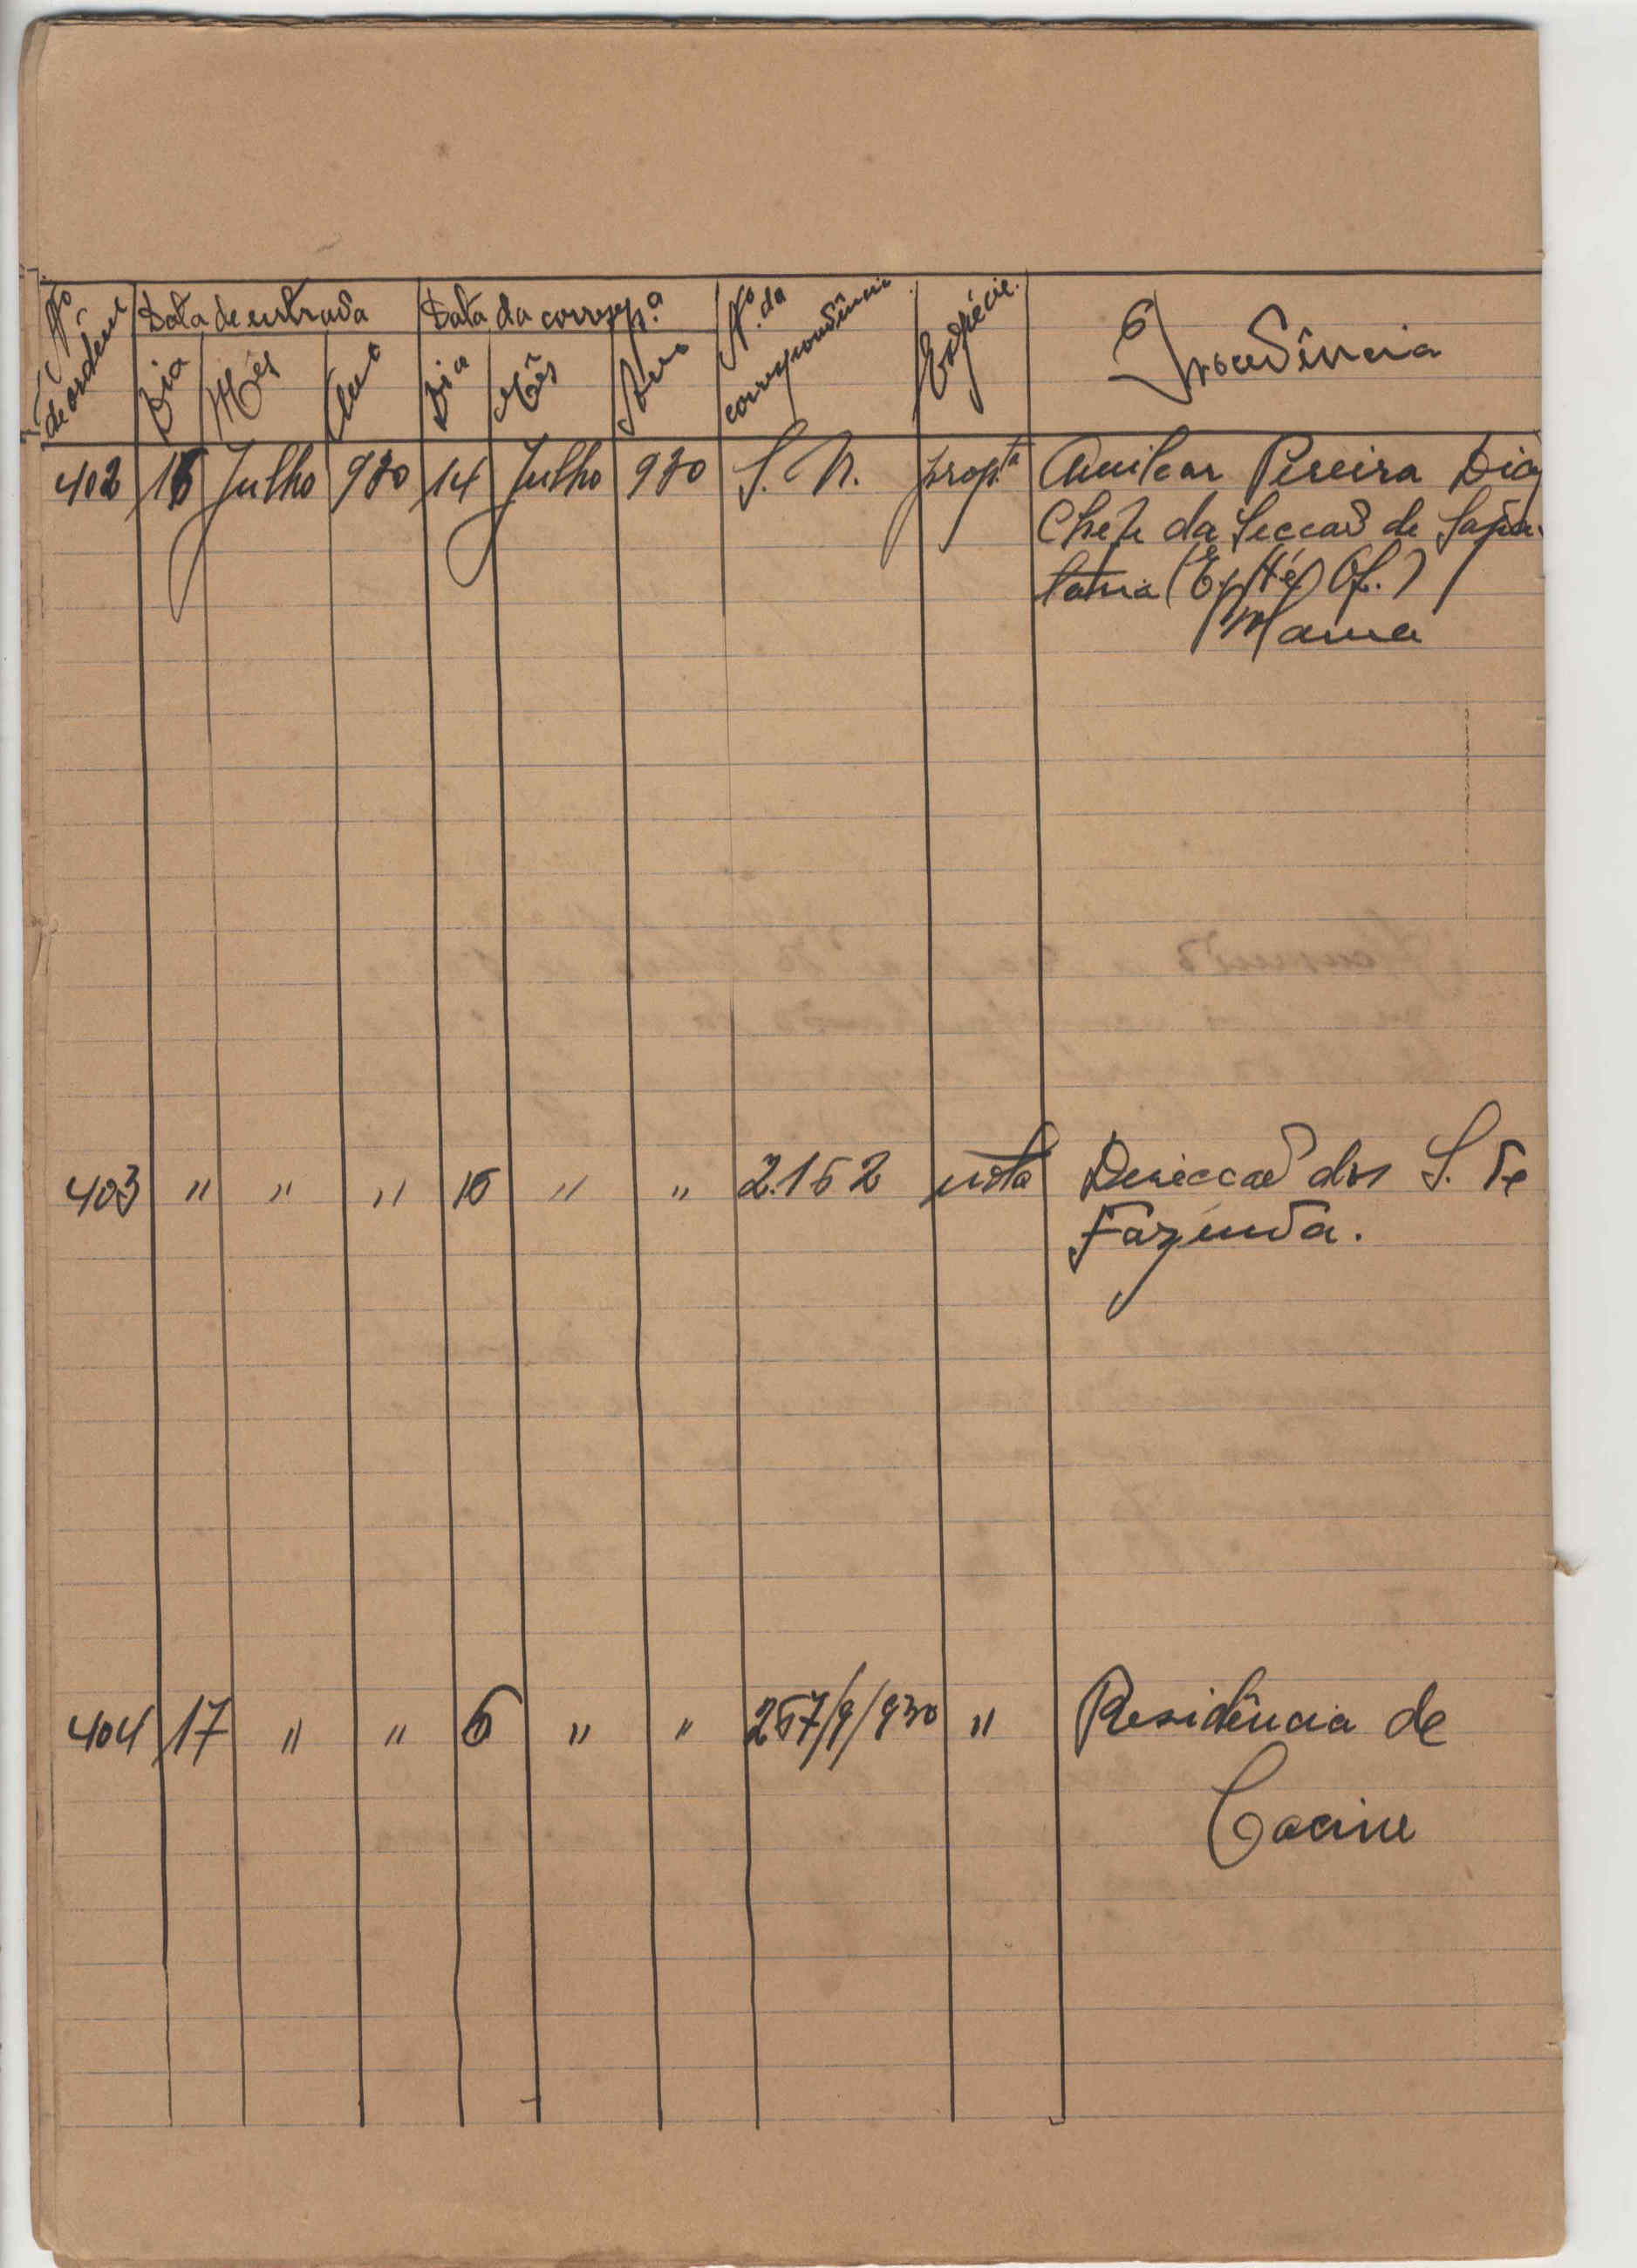 Nº de ordem Data de entrada Data da corresp.ª Nº da correspondência Espécie. Procedência
Dia Mês Ano Dia Mês Ano
402 16 Julho 930 14 Julho 930 S. N. prop.ta Amilcar Pereira Dias
Chefe da Secção de Sapa-
taria Of.)
403 " " " 15 " " 2.152 nota Direcção dos S. de
Fazenda.
404 17 " " 5 " " 257/9/930 " Residência de
Cacine